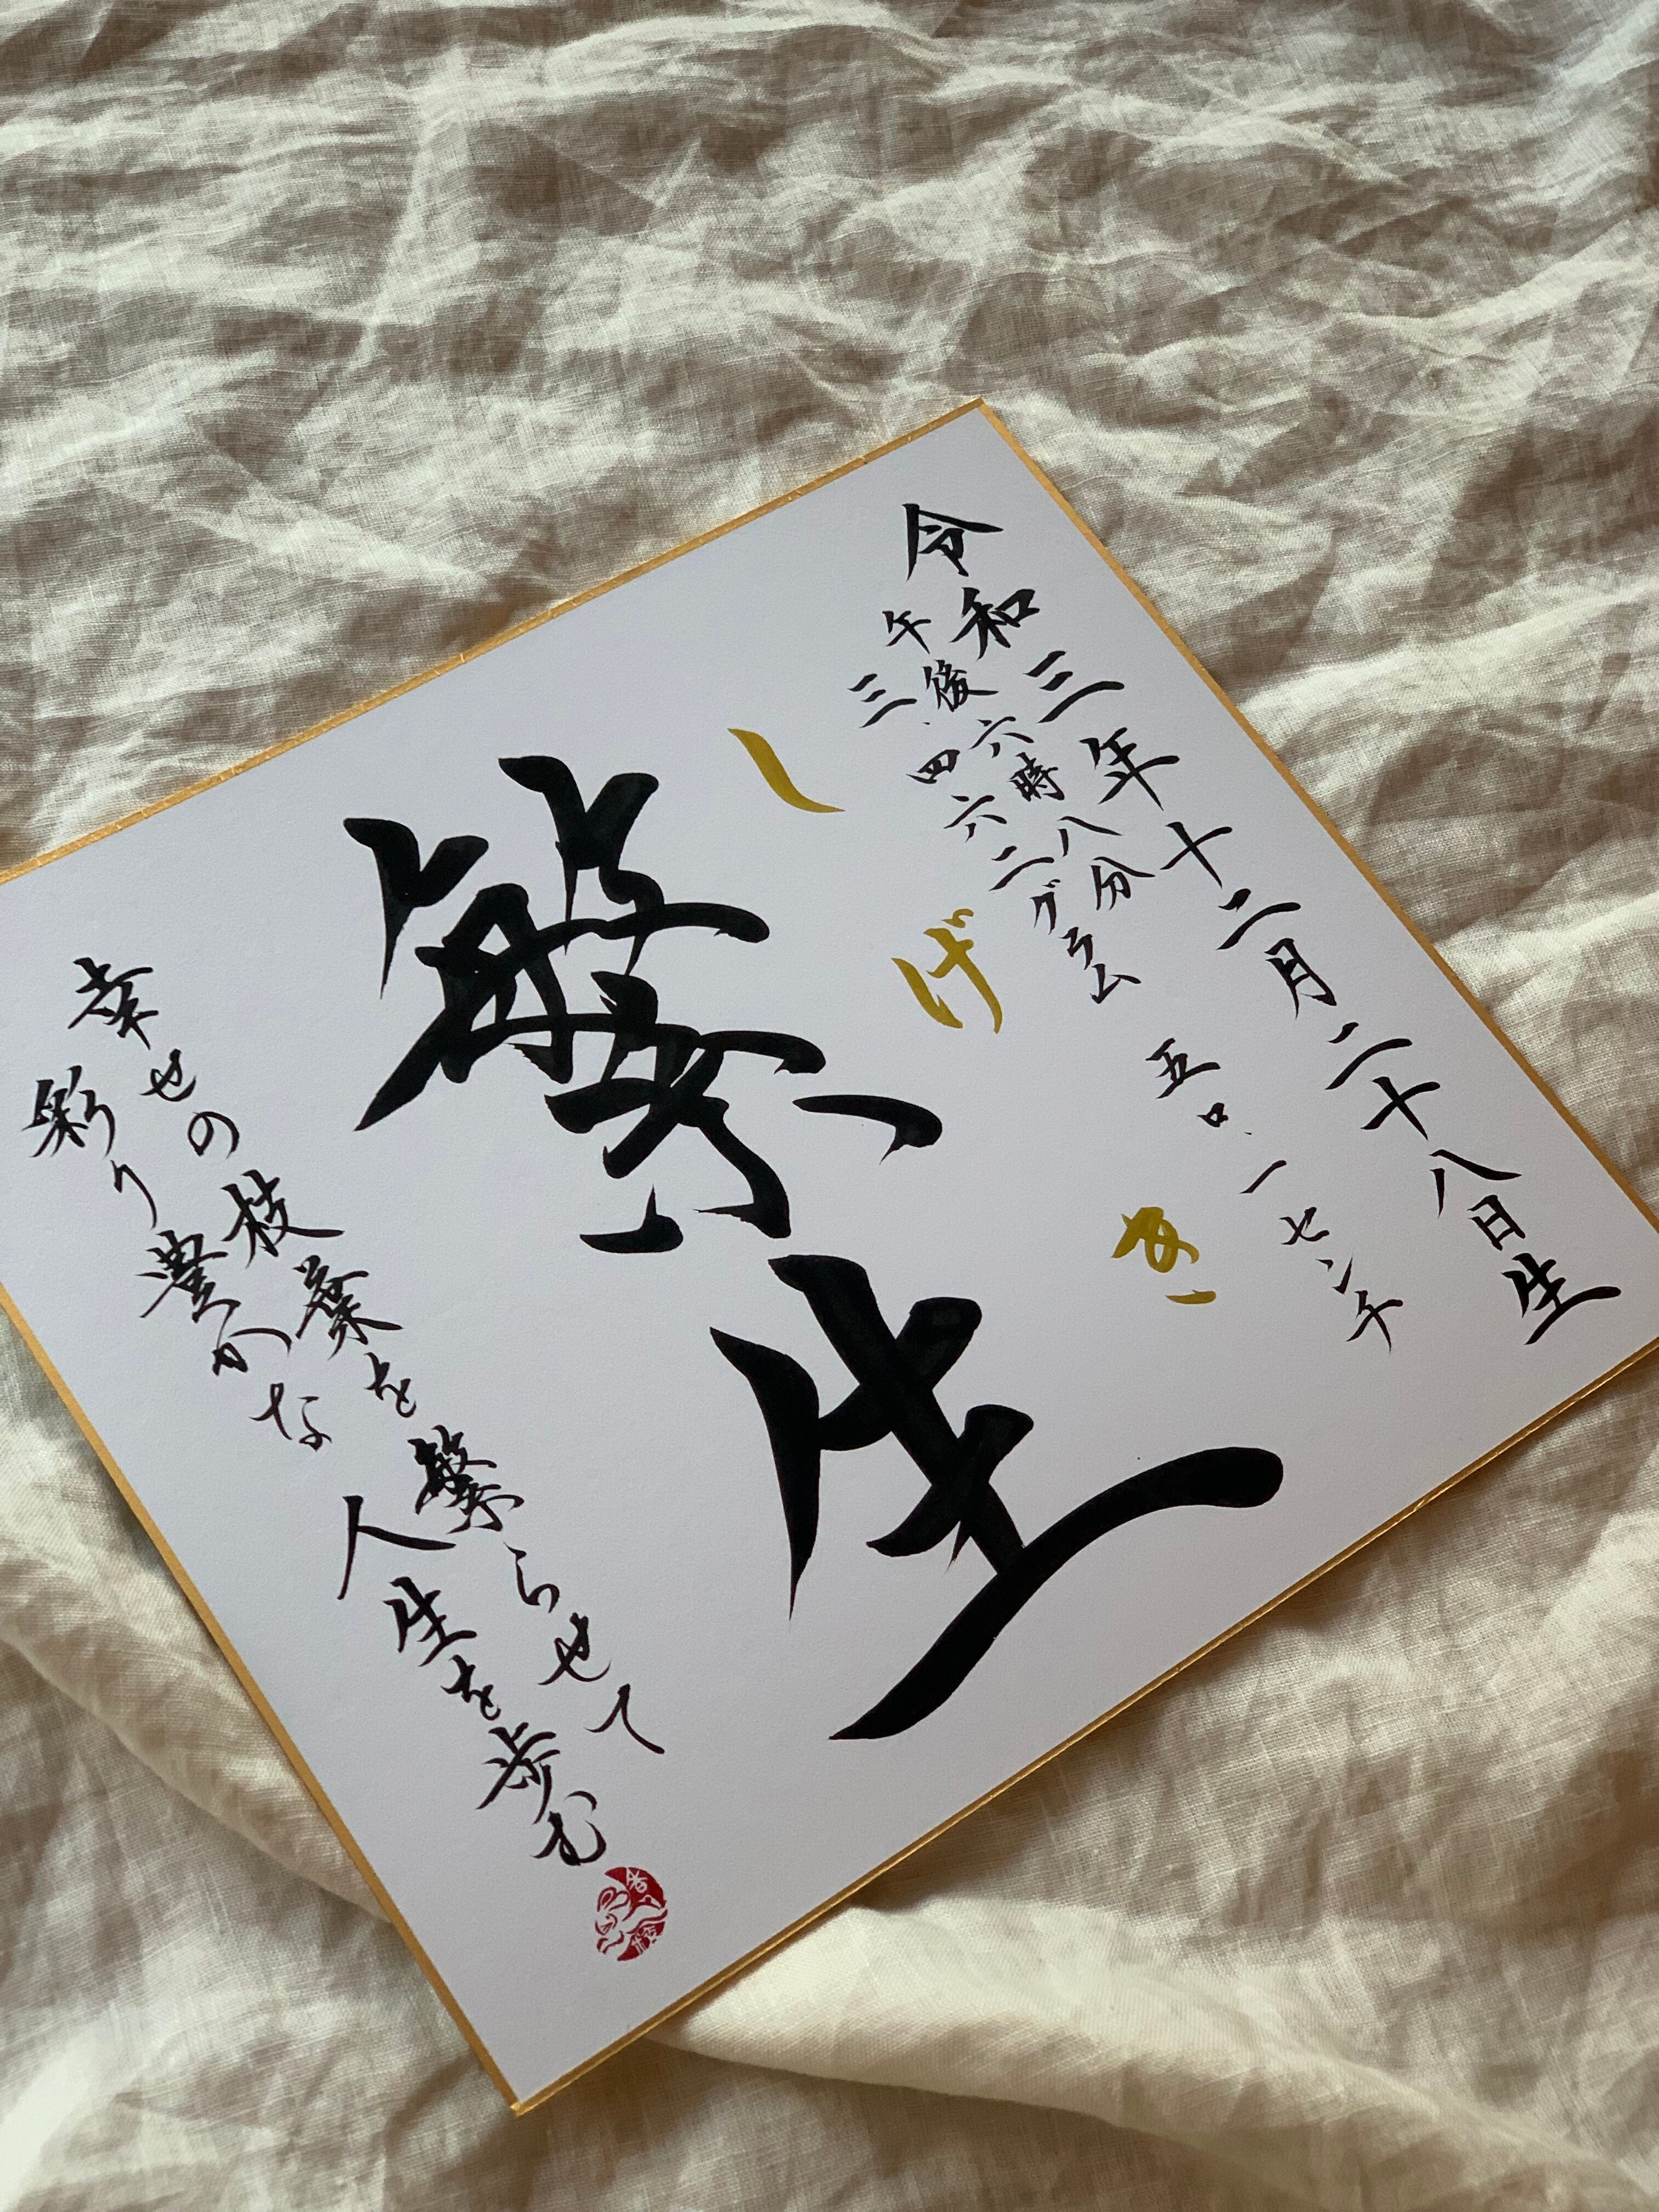 令和三年十二月二十八日生
午後六時八分
三.四六二グラム 五〇.一センチ
しげき
繁生
幸せの枝葉を繁らせて
彩り豊かな人生を歩む